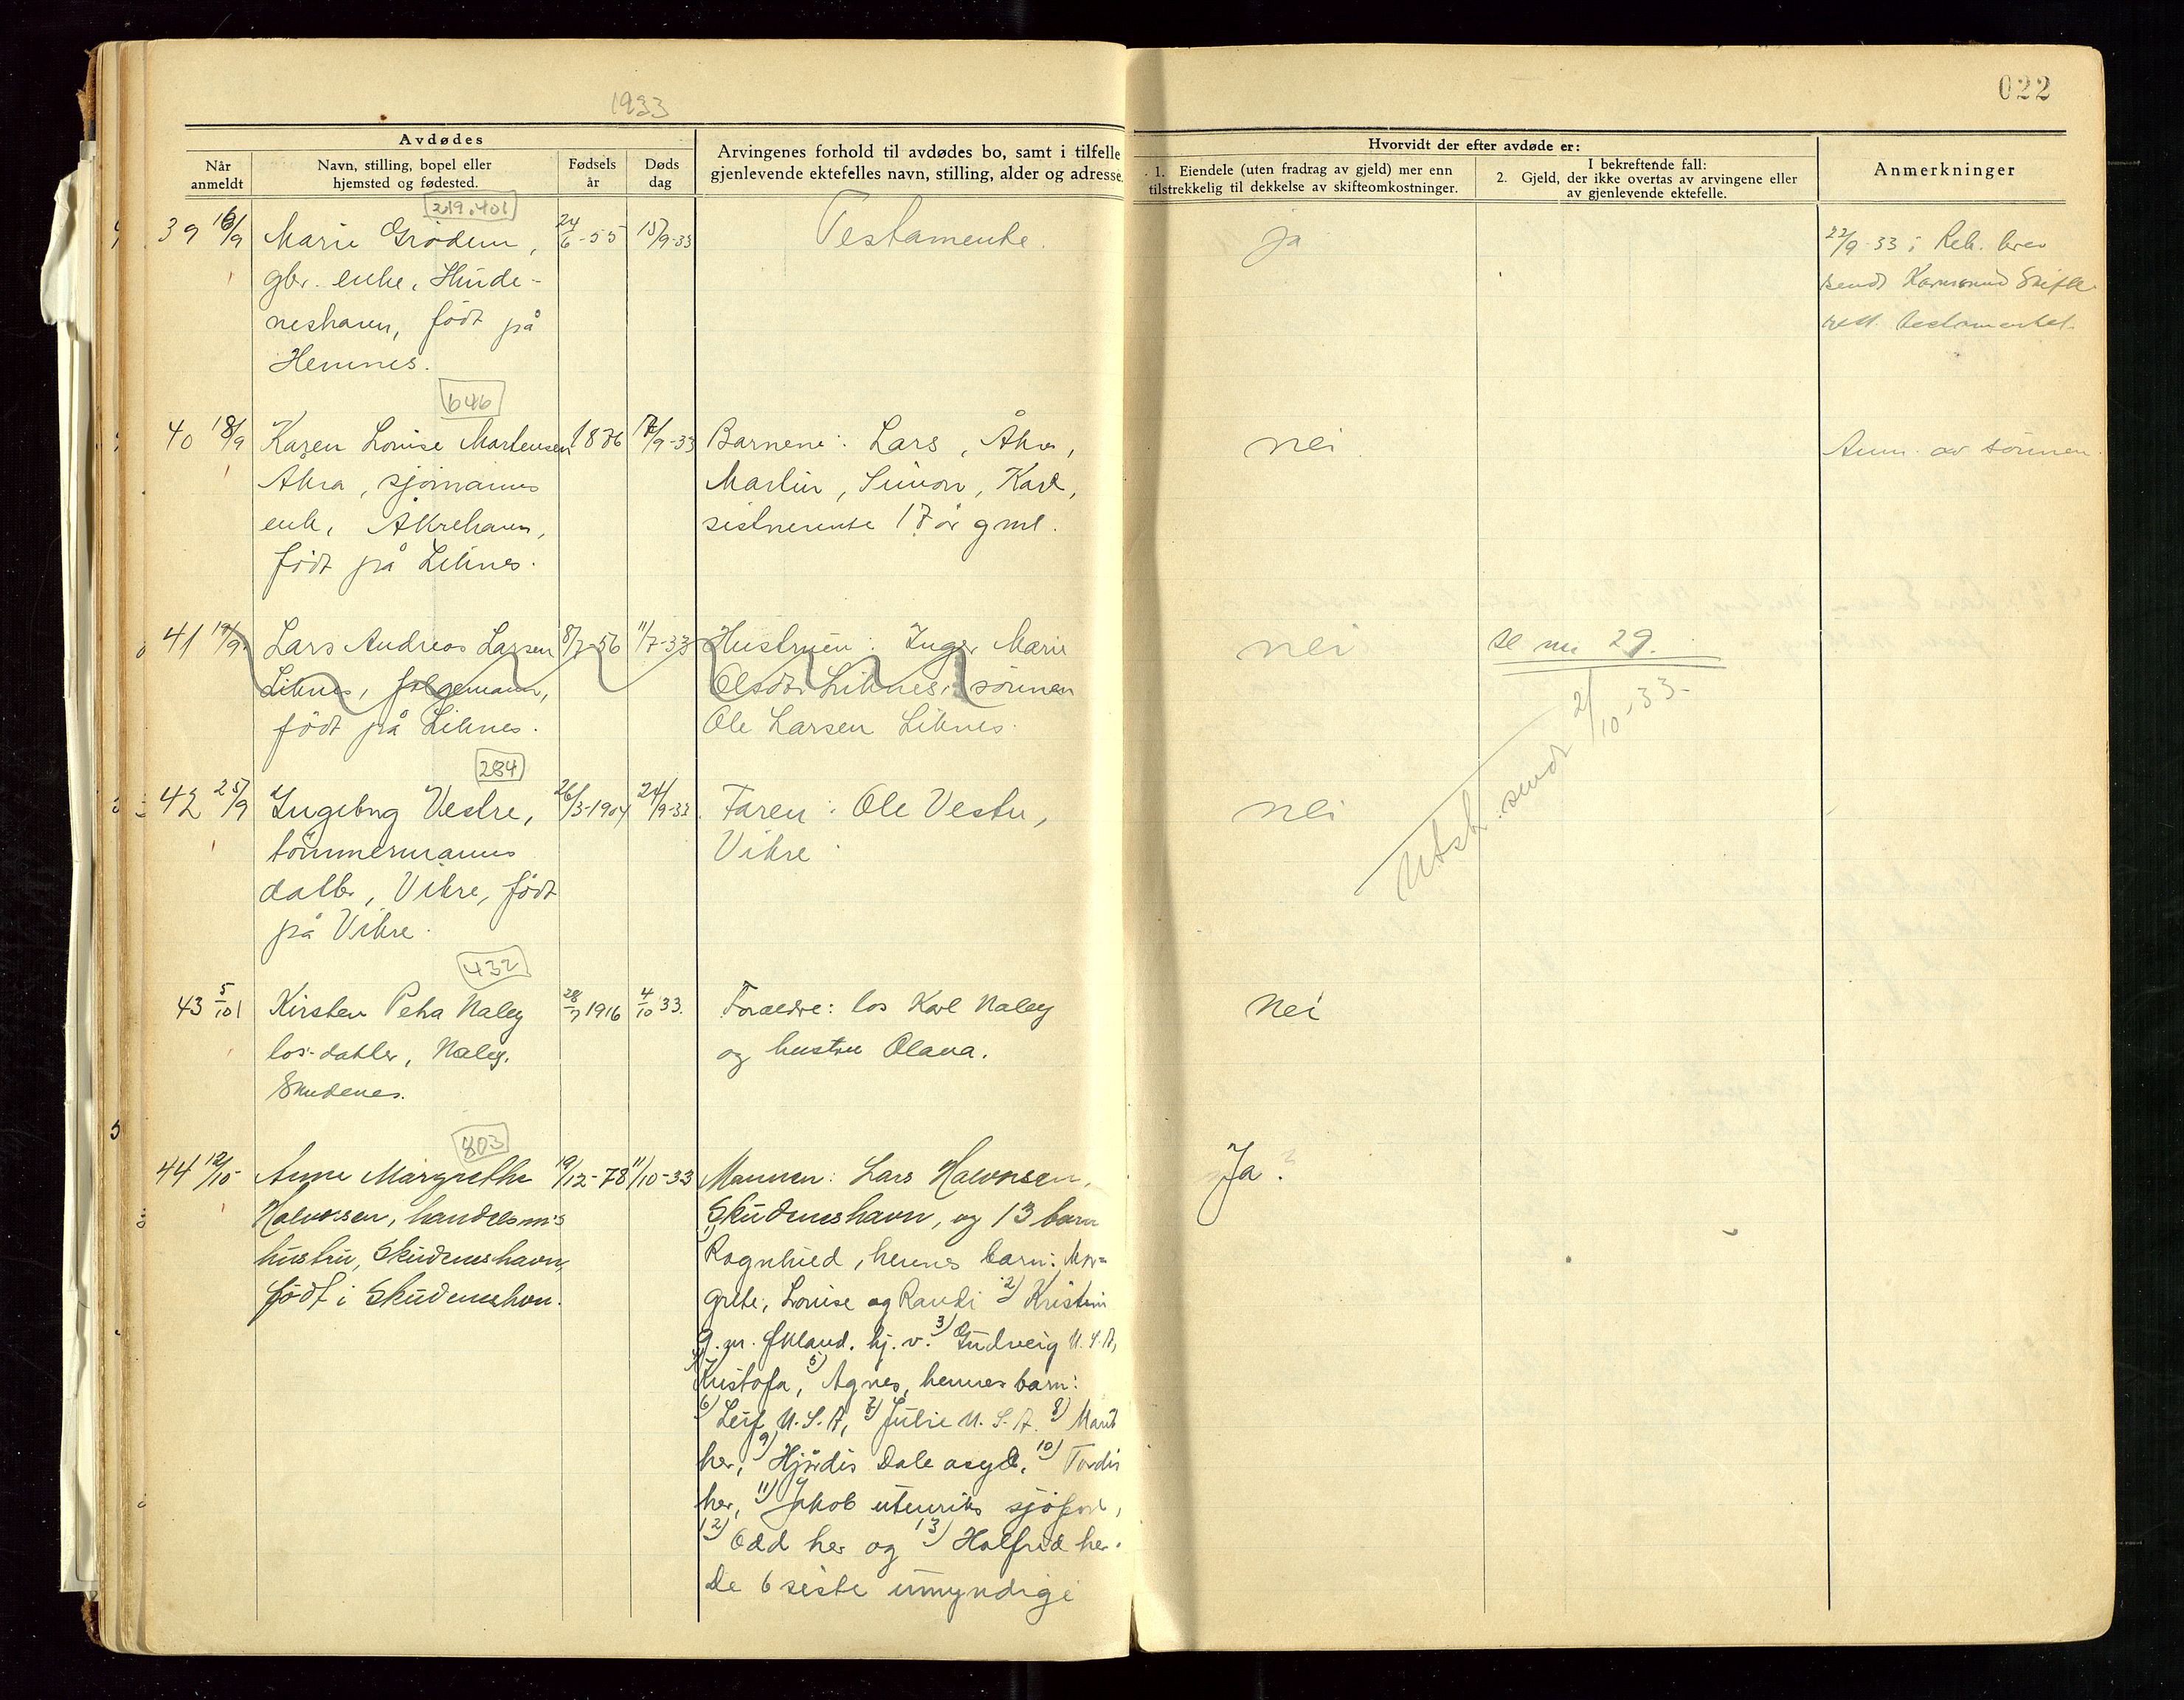 1933
022
Avdødes
Når
anmeldt
Navn, stilling, bopel eller
hjemsted og fødested.
Fødsels
år
Døds
dag
Arvingenes forhold til avdødes bo, samt i tilfelle
gjenlevende ektefelles navn, stilling, alder og adresse.
Hvorvidt der efter avdøde er:
1. Eiendele (uten fradrag av gjeld) mer enn
tilstrekkelig til dekkelse av skifteomkostninger.
I bekreftende fall:
2. Gjeld, der ikke overtas av arvingene eller
av gjenlevende ektefelle.
Anmerkninger
219.401
39 16/9 Marie Grødem, 24/6-55 15/9-33 Testamente. ja 22/9-33 i Rek. brev
gbr. enke, Skude-
sendt Karmsund Skifte
neshavn, födt på
rett testamentet.
Hemnes.
646
40 18/9 Karen Lovise Martensen 1876 17/9-33 Barnene: Lars, Åkra, nei. Anm. av sönnen.
Åkra, sjömanns
Martin, Simon, Karl,
enke, Åkrehavn,
sistnevnte 17 år gml.
födt på Liknes.
41 19/9 Lars Andreas Larsen 8/7-56 11/7-33 Hustruen: Inger Marie nei se nr 29.
Liknes, folgemann,
Olsdtr Liknes, sönnen
födt på Liknes.
Ole Larsen Liknes.
Utskr. sendt 2/10-33.
284
42 25/9 Ingebrg Vestre, 26/3-1904 24/9-33. Faren: Ole Vestre, nei
tömmermanns
Vikre
datter, Vikre, födt
på Vikre.
432
43 5/10 Kirsten Petra Naley 28/7 1916 4/10 33. Foreldre: los Karl Naley Nei
los-datter, Naley.
og hustru Olava.
Skudenes.
803
44 12/10 Anne Margrethe 19/12-78 11/10-33 Mannen: Lars Halvorsen, Ja.
Halvorsen, handelsm's
Skudeneshavn, og 13 barn
hustru, Skudeneshavn,
1) Ragnhild, hennes barn: Mar-
födt i Skudeneshavn.
grete, Lovise og Randi 2) Kristin
g.m. Økland. hj. v. 3) Gudveig U.S.A,
4) Kristofa, 5) Agnes, hennes barn:
6) Leif U.S.A, 7) Julie U.S.A. 8) Marit
her, 9) Hjördis Dale asyl, 10) Tordis
her, 11) Jakob utenriks sjöfart,
12) Odd her og 13) Halfrid her.
De 6 siste umyndige